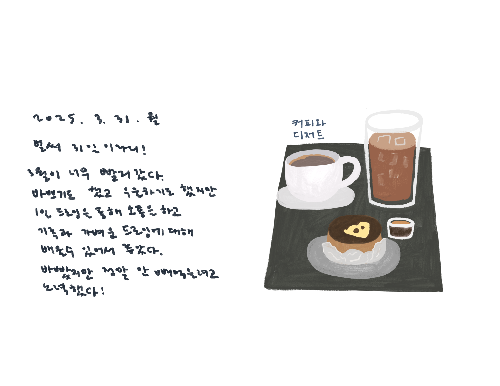 2025. 3. 31. 월
벌써 31일이라니!
3월이 너무 빨리 갔다.
바쁘기도 했고 우울하기도 했지만
1일 드로잉을 통해 소통을 하고
기록과 가벼운 드로잉에 대해
배울 수 있어서 좋았다.
바빴지만 정말 안 빼먹으려고
노력했다!
커피와
디저트